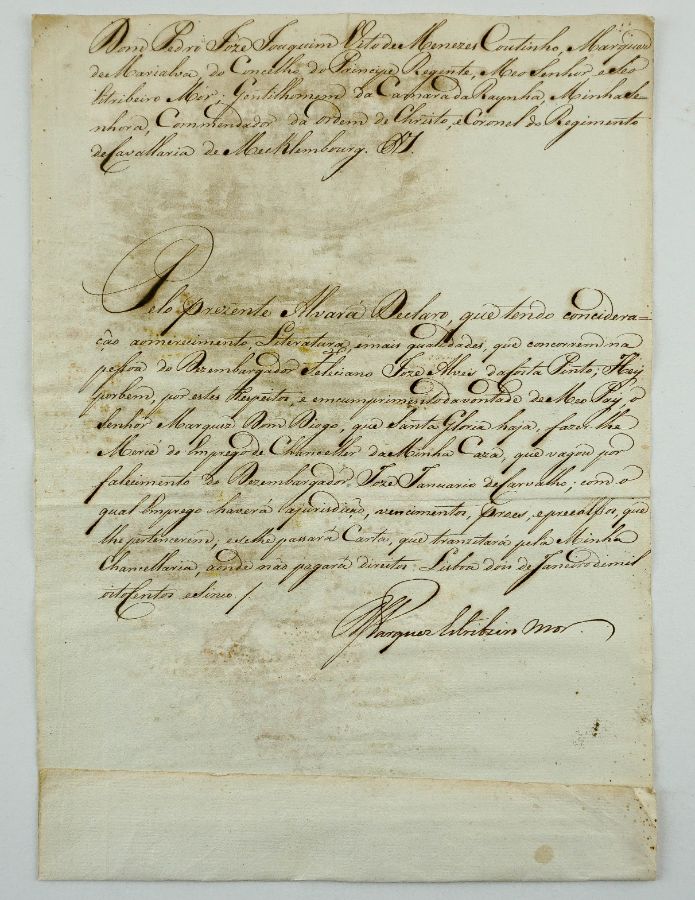 Dom Pedro Joze Joaquim Vito de Menezes Coutinho, Marquez
de Marialva do Concelho do Principe Regente, Meo Senhor e Seo
Estribeiro Mor, Gentilhomem da Camara da Raynha, Minha Se-
nhora, Commendador da Ordem de Christo, e Coronel do Regimento
de Cavallaria de Mecklembourg. &ª.
Pelo prezente Alvará Declaro, que tendo concidera=
ção ao merecimento, Literatura, e mais qualidades, que concorrem na
pessoa do Dezembargador Feliciano Joze Alves da Costa Pinto; Hey
por bem, por estes Respeitos, e em cumprimento da vontade de Meo Pay, o
Senhor Marquez Dom Diogo, que Santa Gloria haja, fazer lhe
Mercé do Emprego de Chanceller da Minha Caza, que vagou por
falecimento do Dezembargador Joze Januario de Carvalho; com o
qual Emprego haverá a jurisdição, vencimentos, proes, e precalsos, que
lhe pertencerem, e se lhe passará Carta, que tranzitará pela Minha
Chancellaria, aonde não pagará direitos. Lisboa dois de Janeiro de mil
oito Centos e Sinco. /
Marquez Estribeiro Mor